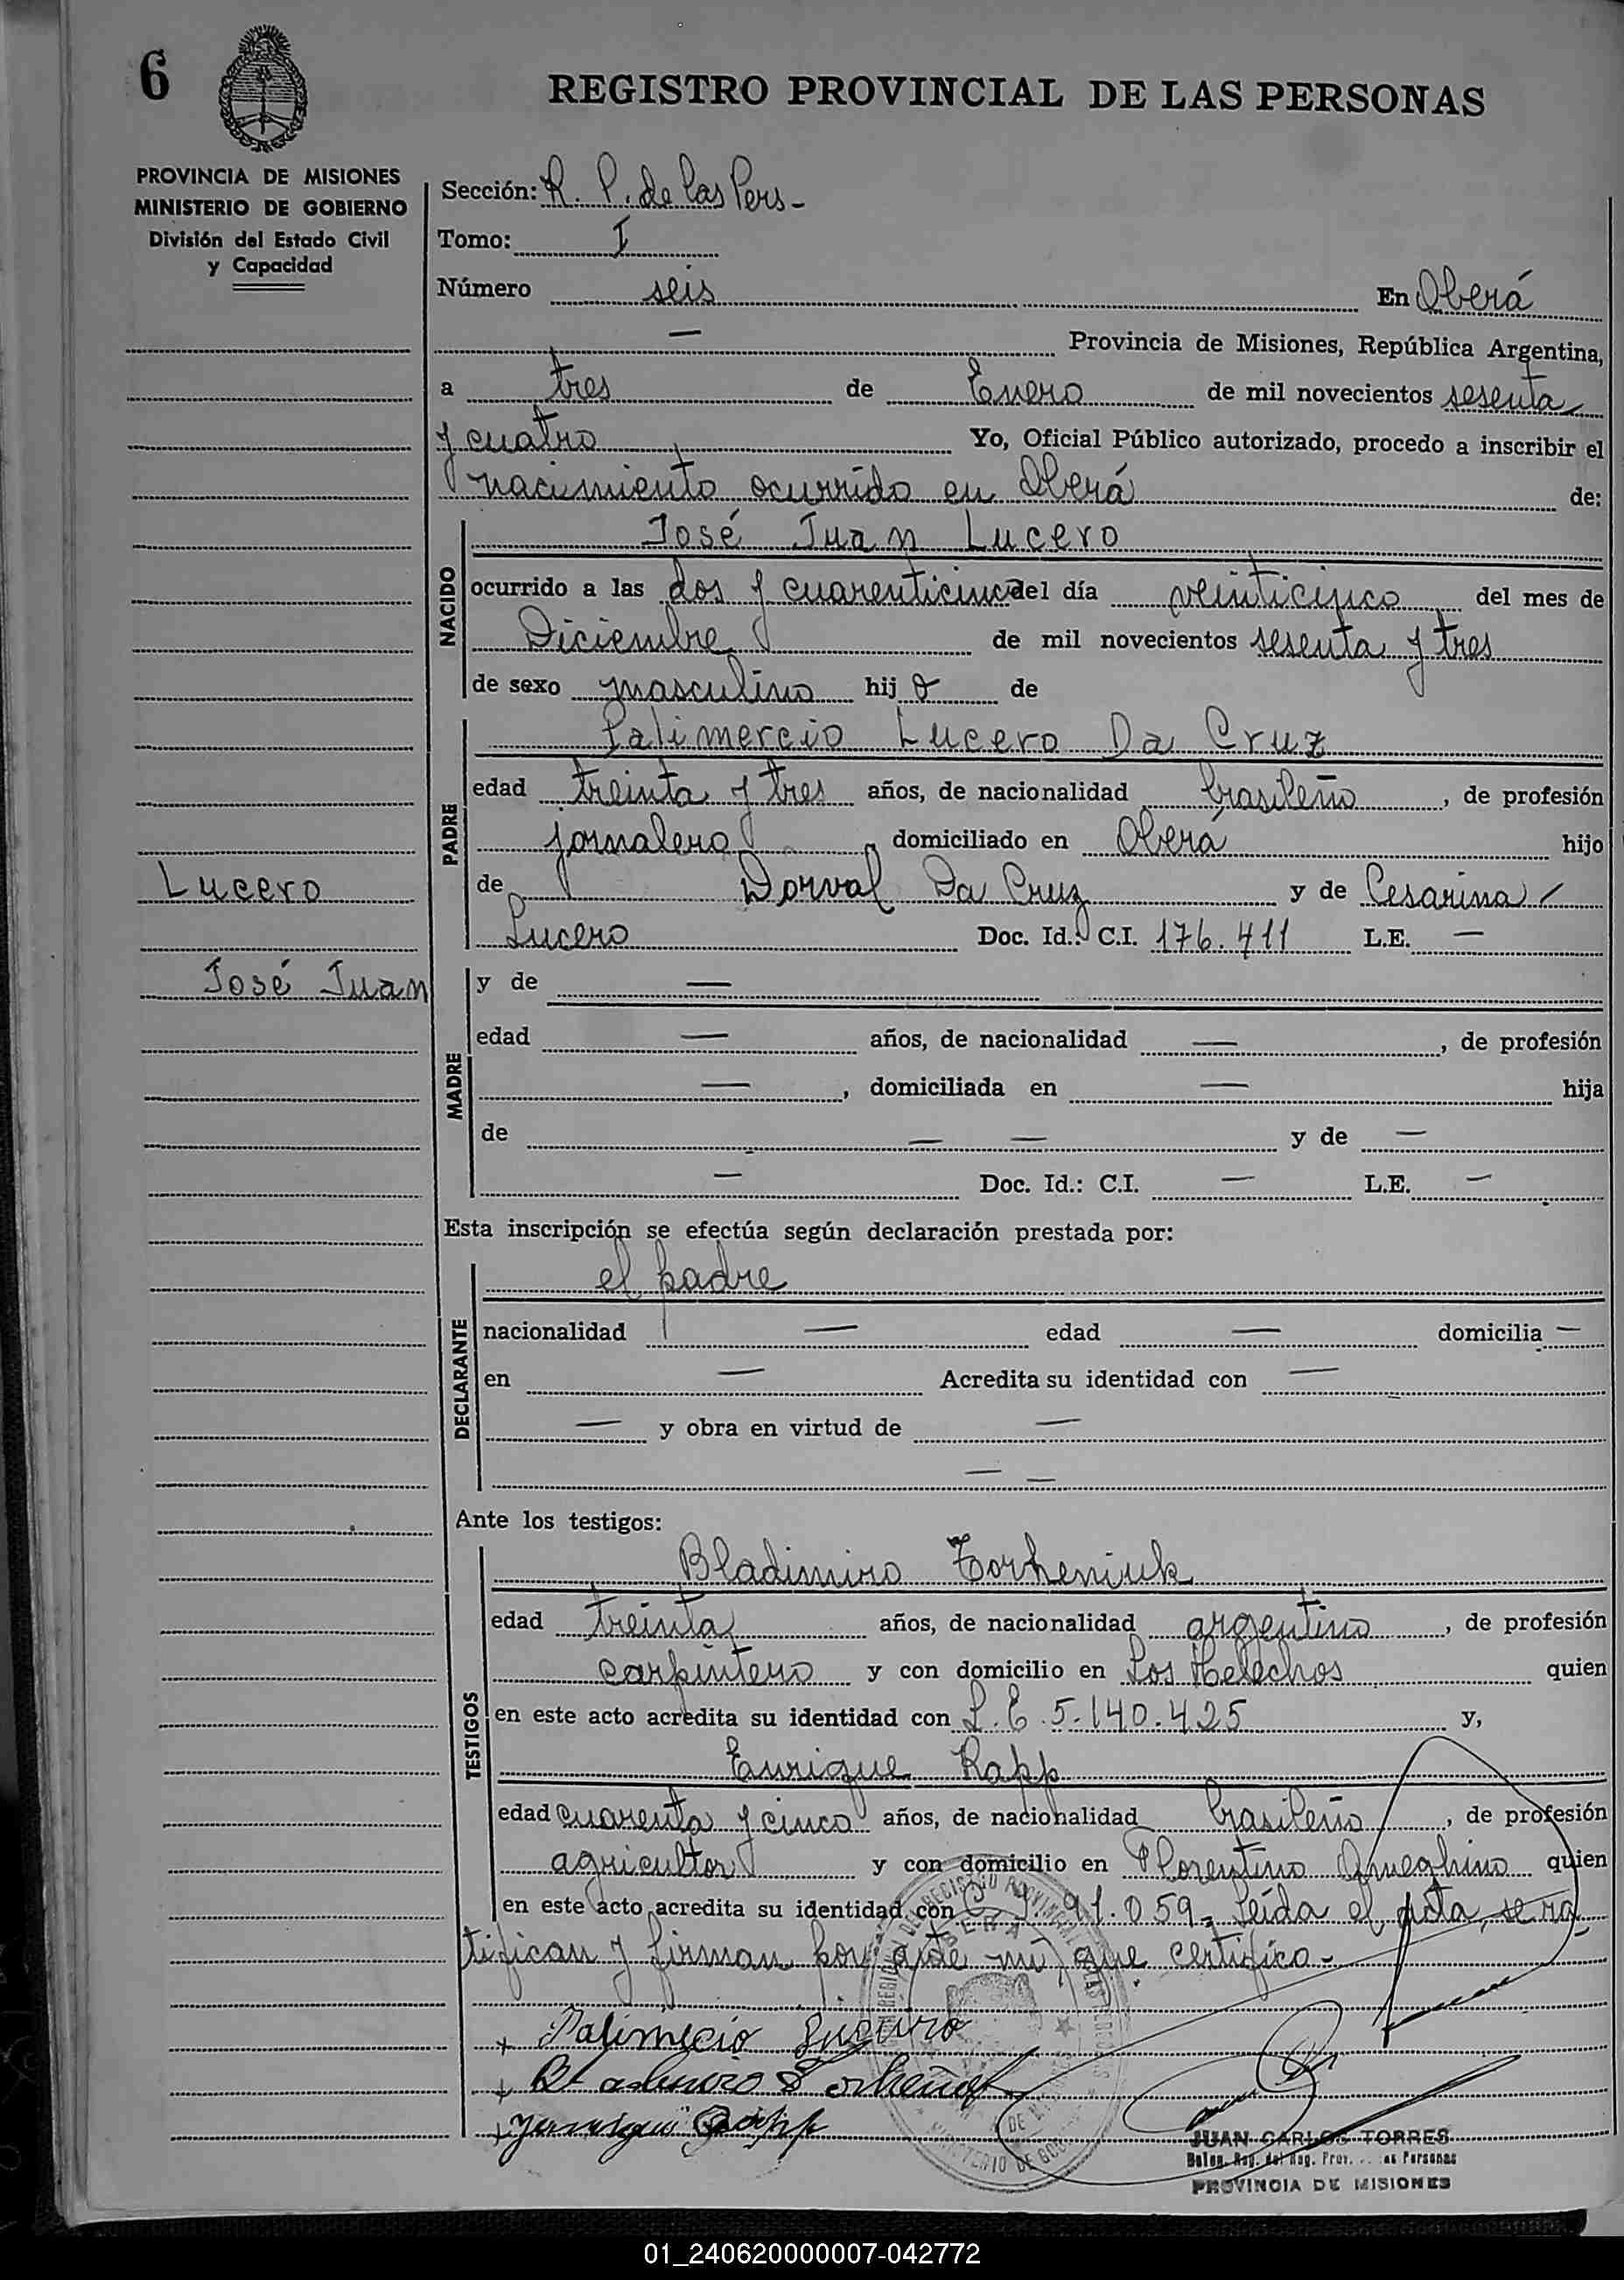 6
REGISTRO PROVINCIAL DE LAS PERSONAS
PROVINCIA DE MISIONES
MINISTERIO DE GOBIERNO
División del Estado Civil
y Capacidad
Sección: R. P. de las Pers-
Tomo: I
Número seis En Oberá
— Provincia de Misiones, República Argentina,
a tres de Enero de mil novecientos sesenta
y cuatro Yo, Oficial Público autorizado, procedo a inscribir el
nacimiento ocurrido en Oberá de:
NACIDO
José Juan Lucero
ocurrido a las dos y cuarenticinco del día veinticinco del mes de
Diciembre de mil novecientos sesenta y tres
de sexo masculino hijo de
PADRE
Palimercio Lucero Da Cruz
edad treinta y tres años, de nacionalidad brasileño, de profesión
jornalero domiciliado en Oberá hijo
Lucero
de Dorval Da Cruz y de Cesarina
Lucero Doc. Id.: C.I. 176.411 L.E. —
José Juan
MADRE
y de —
edad — años, de nacionalidad —, de profesión
—, domiciliada en — hija
de — — y de —
— Doc. Id.: C.I. — L.E. —
Esta inscripción se efectúa según declaración prestada por:
DECLARANTE
el padre
nacionalidad — edad — domicilia —
en — Acredita su identidad con —
— y obra en virtud de —
— —
Ante los testigos:
TESTIGOS
Bladimiro Torheniuk
edad treinta años, de nacionalidad argentino, de profesión
carpintero y con domicilio en Los Helechos quien
en este acto acredita su identidad con L.E. 5.140.425 y,
Enrique Rapp
edad cuarenta y cinco años, de nacionalidad brasileño, de profesión
agricultor y con domicilio en Florentino Ameghino quien
en este acto acredita su identidad con 91.059- Leída el acta, se ra
tifican y firman por ante mí, que certifico.-
+ Palimecio
+
+
JUAN CARLOS TORRES
PROVINCIA DE MISIONES
01_240620000007-042772